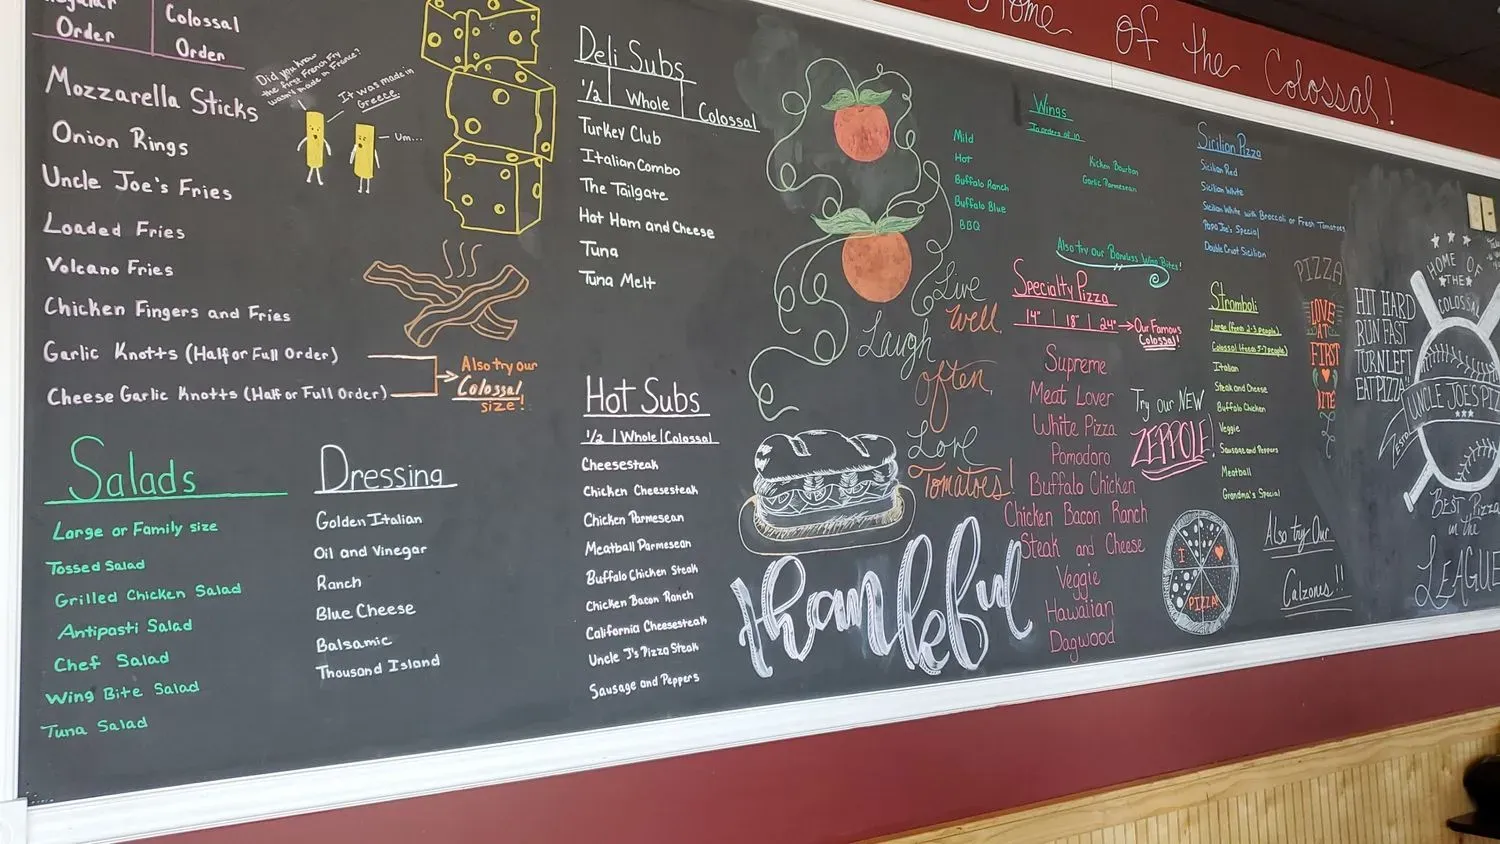 Regular
Order
Colossal
Order
Mozzarella Sticks
Onion Rings
Uncle Joe's Fries
Loaded Fries
Volcano Fries
Chicken Fingers and Fries
Garlic Knotts (Half or Full Order)
Cheese Garlic Knotts (Half or Full Order)
Also try our
Colossal
size!
Did you know
the first French Fry
wasn't made in France?
It was made in
Greece.
Um...
Salads
Large or Family size
Tossed Salad
Grilled Chicken Salad
Antipasti Salad
Chef Salad
Wing Bite Salad
Tuna Salad
Dressing
Golden Italian
Oil and Vinegar
Ranch
Blue Cheese
Balsamic
Thousand Island
Deli Subs
1/2 | Whole | Colossal
Turkey Club
Italian Combo
The Tailgate
Hot Ham and Cheese
Tuna
Tuna Melt
Hot Subs
1/2 | Whole | Colossal
Cheesesteak
Chicken Cheesesteak
Chicken Parmesean
Meatball Parmesean
Buffalo Chicken Steak
Chicken Bacon Ranch
California Cheesesteak
Uncle J's Pizza Steak
Sausage and Peppers
Live
Well,
Laugh
often,
Love
Tomatoes!
thankful
Home of the Colossal!
Wings
In orders of 10
Mild
Hot
Buffalo Ranch
Buffalo Blue
BBQ
Garlic Parmesean
Also try our Boneless Wing Bites!
Specialty Pizza
14" | 18" | 24"
Our Famous
Colossal!
Supreme
Meat Lover
White Pizza
Pomodoro
Buffalo Chicken
Chicken Bacon Ranch
Steak and Cheese
Veggie
Hawaiian
Dagwood
Try our NEW
ZEPPOLE!
I
PIZZA!
Sicilian Pizza
Sicilian Red
Sicilian White
Sicilian White with Broccoli or Fresh Tomatoes
Papa Joe's Special
Double Crust Sicilian
Stromboli
Italian
Steak and Cheese
Buffalo Chicken
Veggie
Sausage and Peppers
Meatball
Grandma's Special
Also try Our
Calzones!!
PIZZA
LOVE
AT
FIRST
BITE
HIT HARD
RUN FAST
TURN LEFT
EAT PIZZA"
HOME OF
THE
COLOSSAL
UNCLE JOE'S PIZ
BEST Pizza
in the
LEAGUE